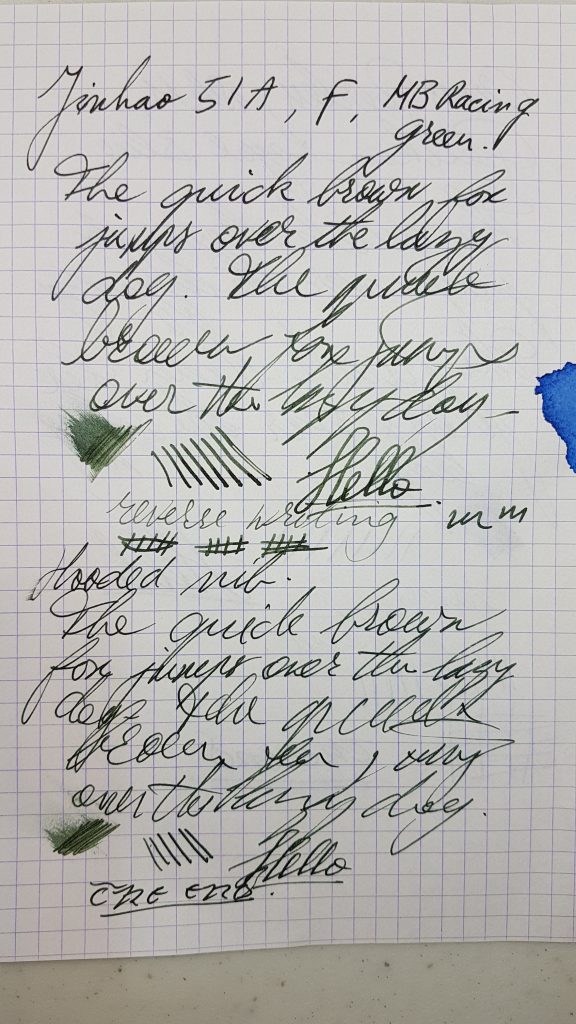 Jinhao 51A, F, MB Racing
green.
The quick brown fox
jumps over the lazy
dog. The quick
brown fox jumps
over the lazy dog
Hello
reverse writing
Hooded nib.
The quick brown
fox jumps over the lazy
dog. The quick
brown fox
over the lazy dog.
Hello
THE END.